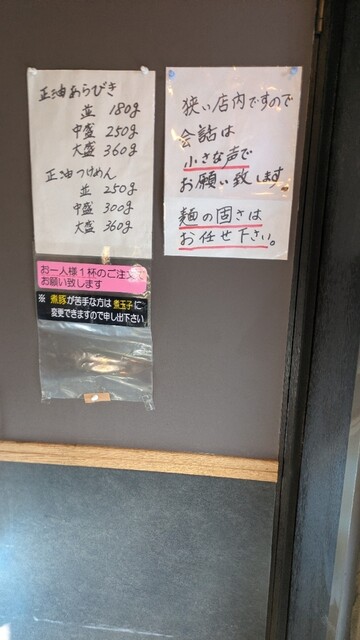 正油あらびき
並 180g
中盛 250g
大盛 360g
正油つけめん
並 250g
中盛 300g
大盛 360g
お一人様1杯のご注文
お願い致します
※ 煮豚が苦手な方は煮玉子に
変更できますので申し出下さい
狭い店内ですので
会話は
小さな声で
お願い致します。
麺の固さは
お任せ下さい。